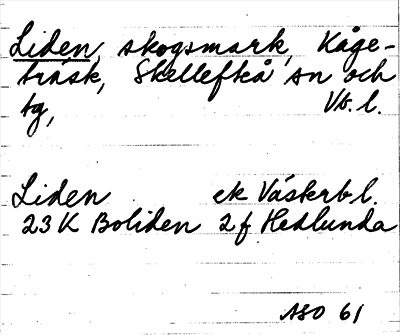 Liden, skogsmark, Kåge-
träsk, Skellefteå sn och
tg, Vb. l.
Liden ek Västerb l.
23 K Boliden 2 f Hedlunda
ASO 61